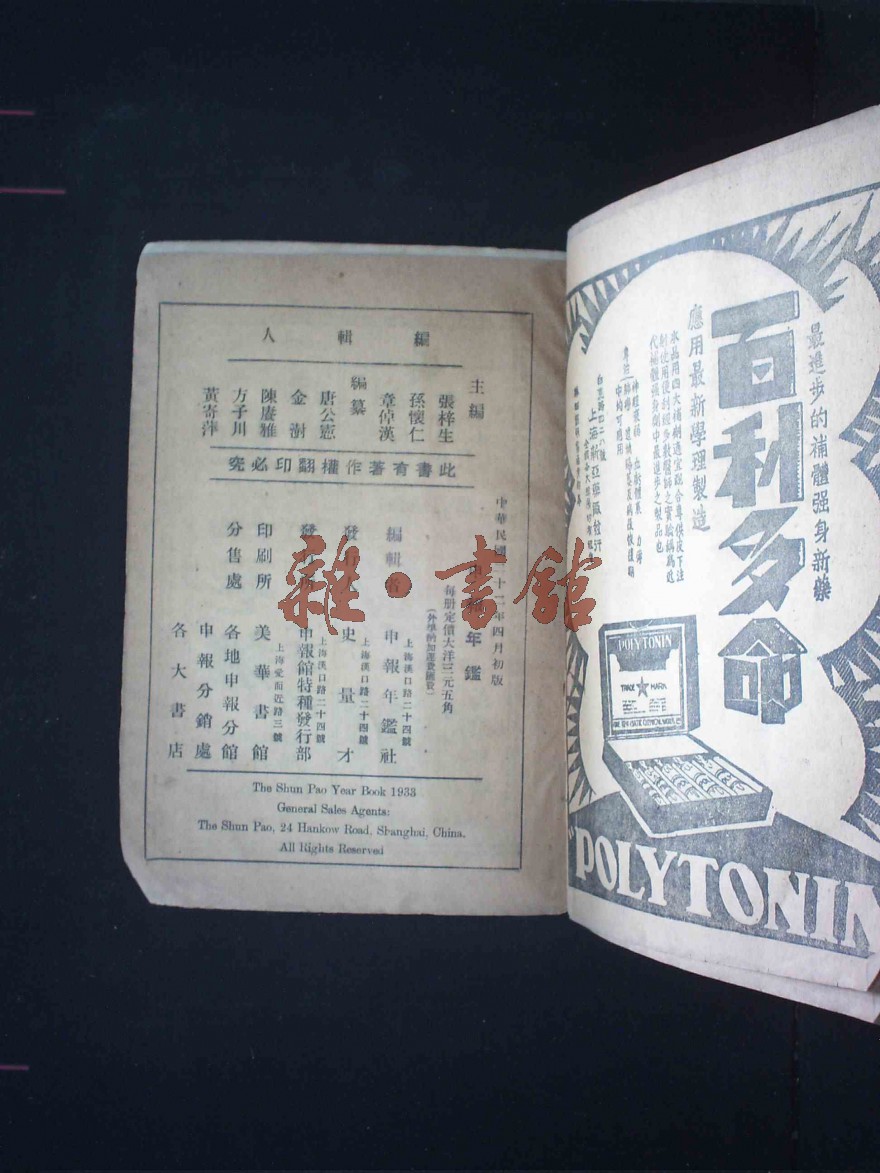 編輯人
主編
張梓生
孫懷仁
章倬漢
編纂
唐公憲
金澍
陳賡雅
方子川
黃寄萍
此書有著作權翻印必究
中華民國二十二年四月初版
年鑑
每册定價大洋三元五角
上海漢口路二十四號
編輯者 申報年鑑社
上海漢口路二十四號
發行人 史量才
上海漢口路二十四號
發行所 申報館特種發行部
上海愛而近路三號
印刷所 美華書館
分售處 各地申報分館
申報分銷處
各大書店
The Shun Pao Year Book 1933
General Sales Agents:
The Shun Pao, 24 Hankow Road, Shanghai, China.
All Rights Reserved
雜·書館
最進步的補體强身新藥
百利多命
應用最新學理製造
上海新亞
POLYTONIN
TRADE MARK
"POLYTONIN